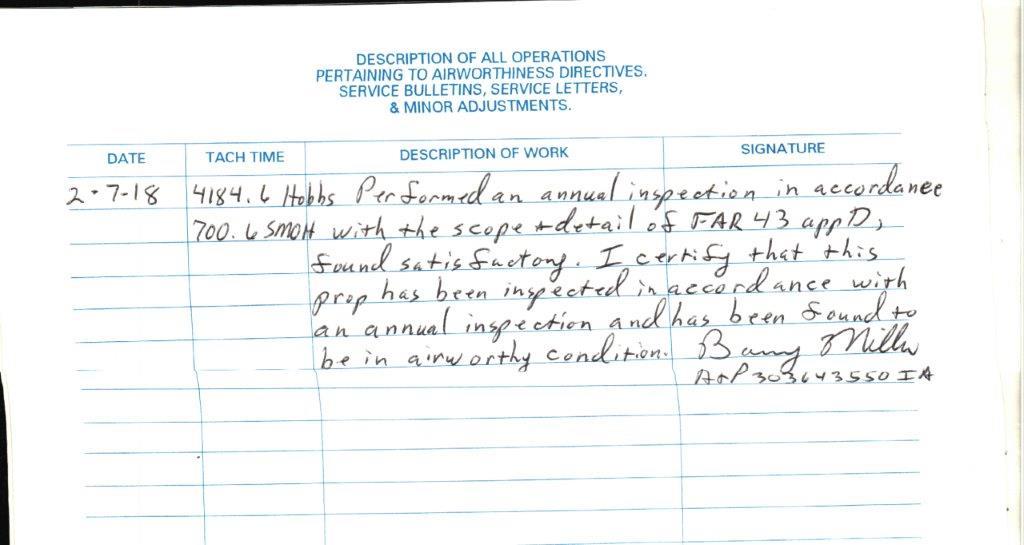 DESCRIPTION OF ALL OPERATIONS
PERTAINING TO AIRWORTHINESS DIRECTIVES,
SERVICE BULLETINS, SERVICE LETTERS,
& MINOR ADJUSTMENTS.
DATE TACH TIME DESCRIPTION OF WORK SIGNATURE
2-7-18 4184.6 Hobbs Performed an annual inspection in accordance
700.6 SMOH with the scope + detail of FAR 43 app D,
found satisfactory. I certify that this
prop has been inspected in accordance with
an annual inspection and has been found to
be in airworthy condition. Barry Miller
A+P 303643550 IA